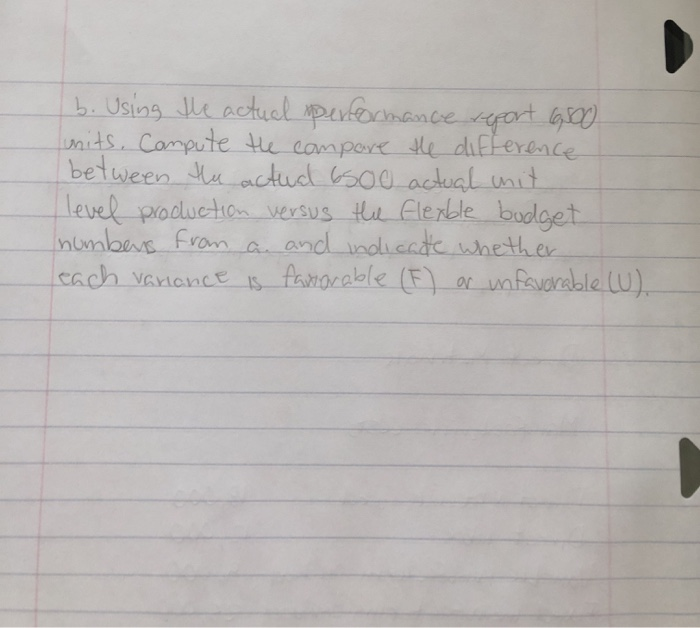 b. Using the actual performance report 6,500
units. Compute the compare the difference
between the actual 6500 actual unit
level production versus the flexble budget
numbers from a. and indicate whether
each variance is favorable (F) or unfavorable (U).